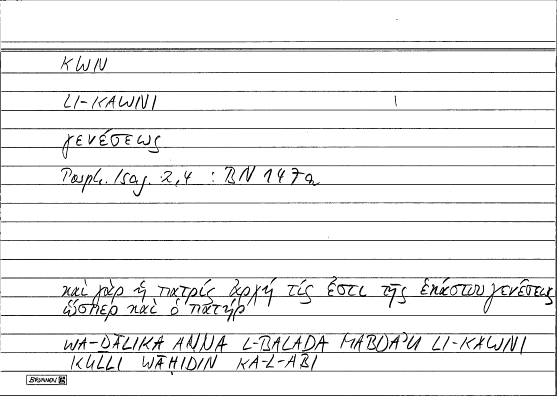 KWN
LI-KAWNI
γενέσεως
Porph. Isag. 2,4 : BN 147a
καὶ γὰρ ἡ πατρίς ἀρχή τίς ἐστι τῆς ἑκάστου γενέσεως
ὥσπερ καὶ ὁ πατήρ
WA-ḎĀLIKA ANNA L-BALADA MABDAʾU LI-KAWNI
KULLI WĀḤIDIN KA-L-ABI
BRUNNEN